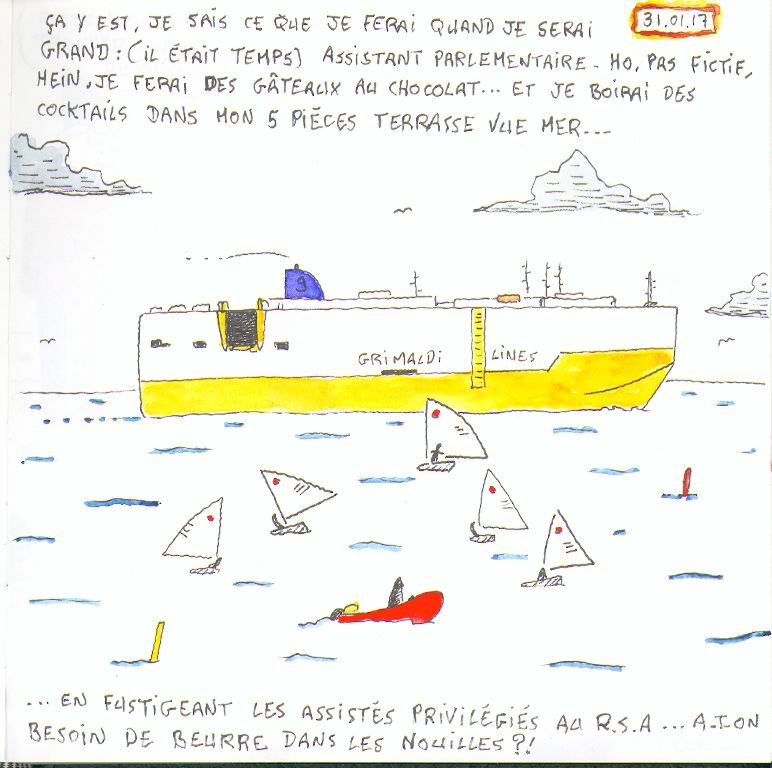 ÇA Y EST, JE SAIS CE QUE JE FERAI QUAND JE SERAI
31.01.17
GRAND : (IL ÉTAIT TEMPS) ASSISTANT PARLEMENTAIRE. HO, PAS FICTIF,
HEIN, JE FERAI DES GÂTEAUX AU CHOCOLAT... ET JE BOIRAI DES
COCKTAILS DANS MON 5 PIÈCES TERRASSE VUE MER...
g
GRIMALDI LINES
... EN FUSTIGEANT LES ASSISTÉS PRIVILÉGIÉS AU R.S.A... A-T-ON
BESOIN DE BEURRE DANS LES NOUILLES ?!